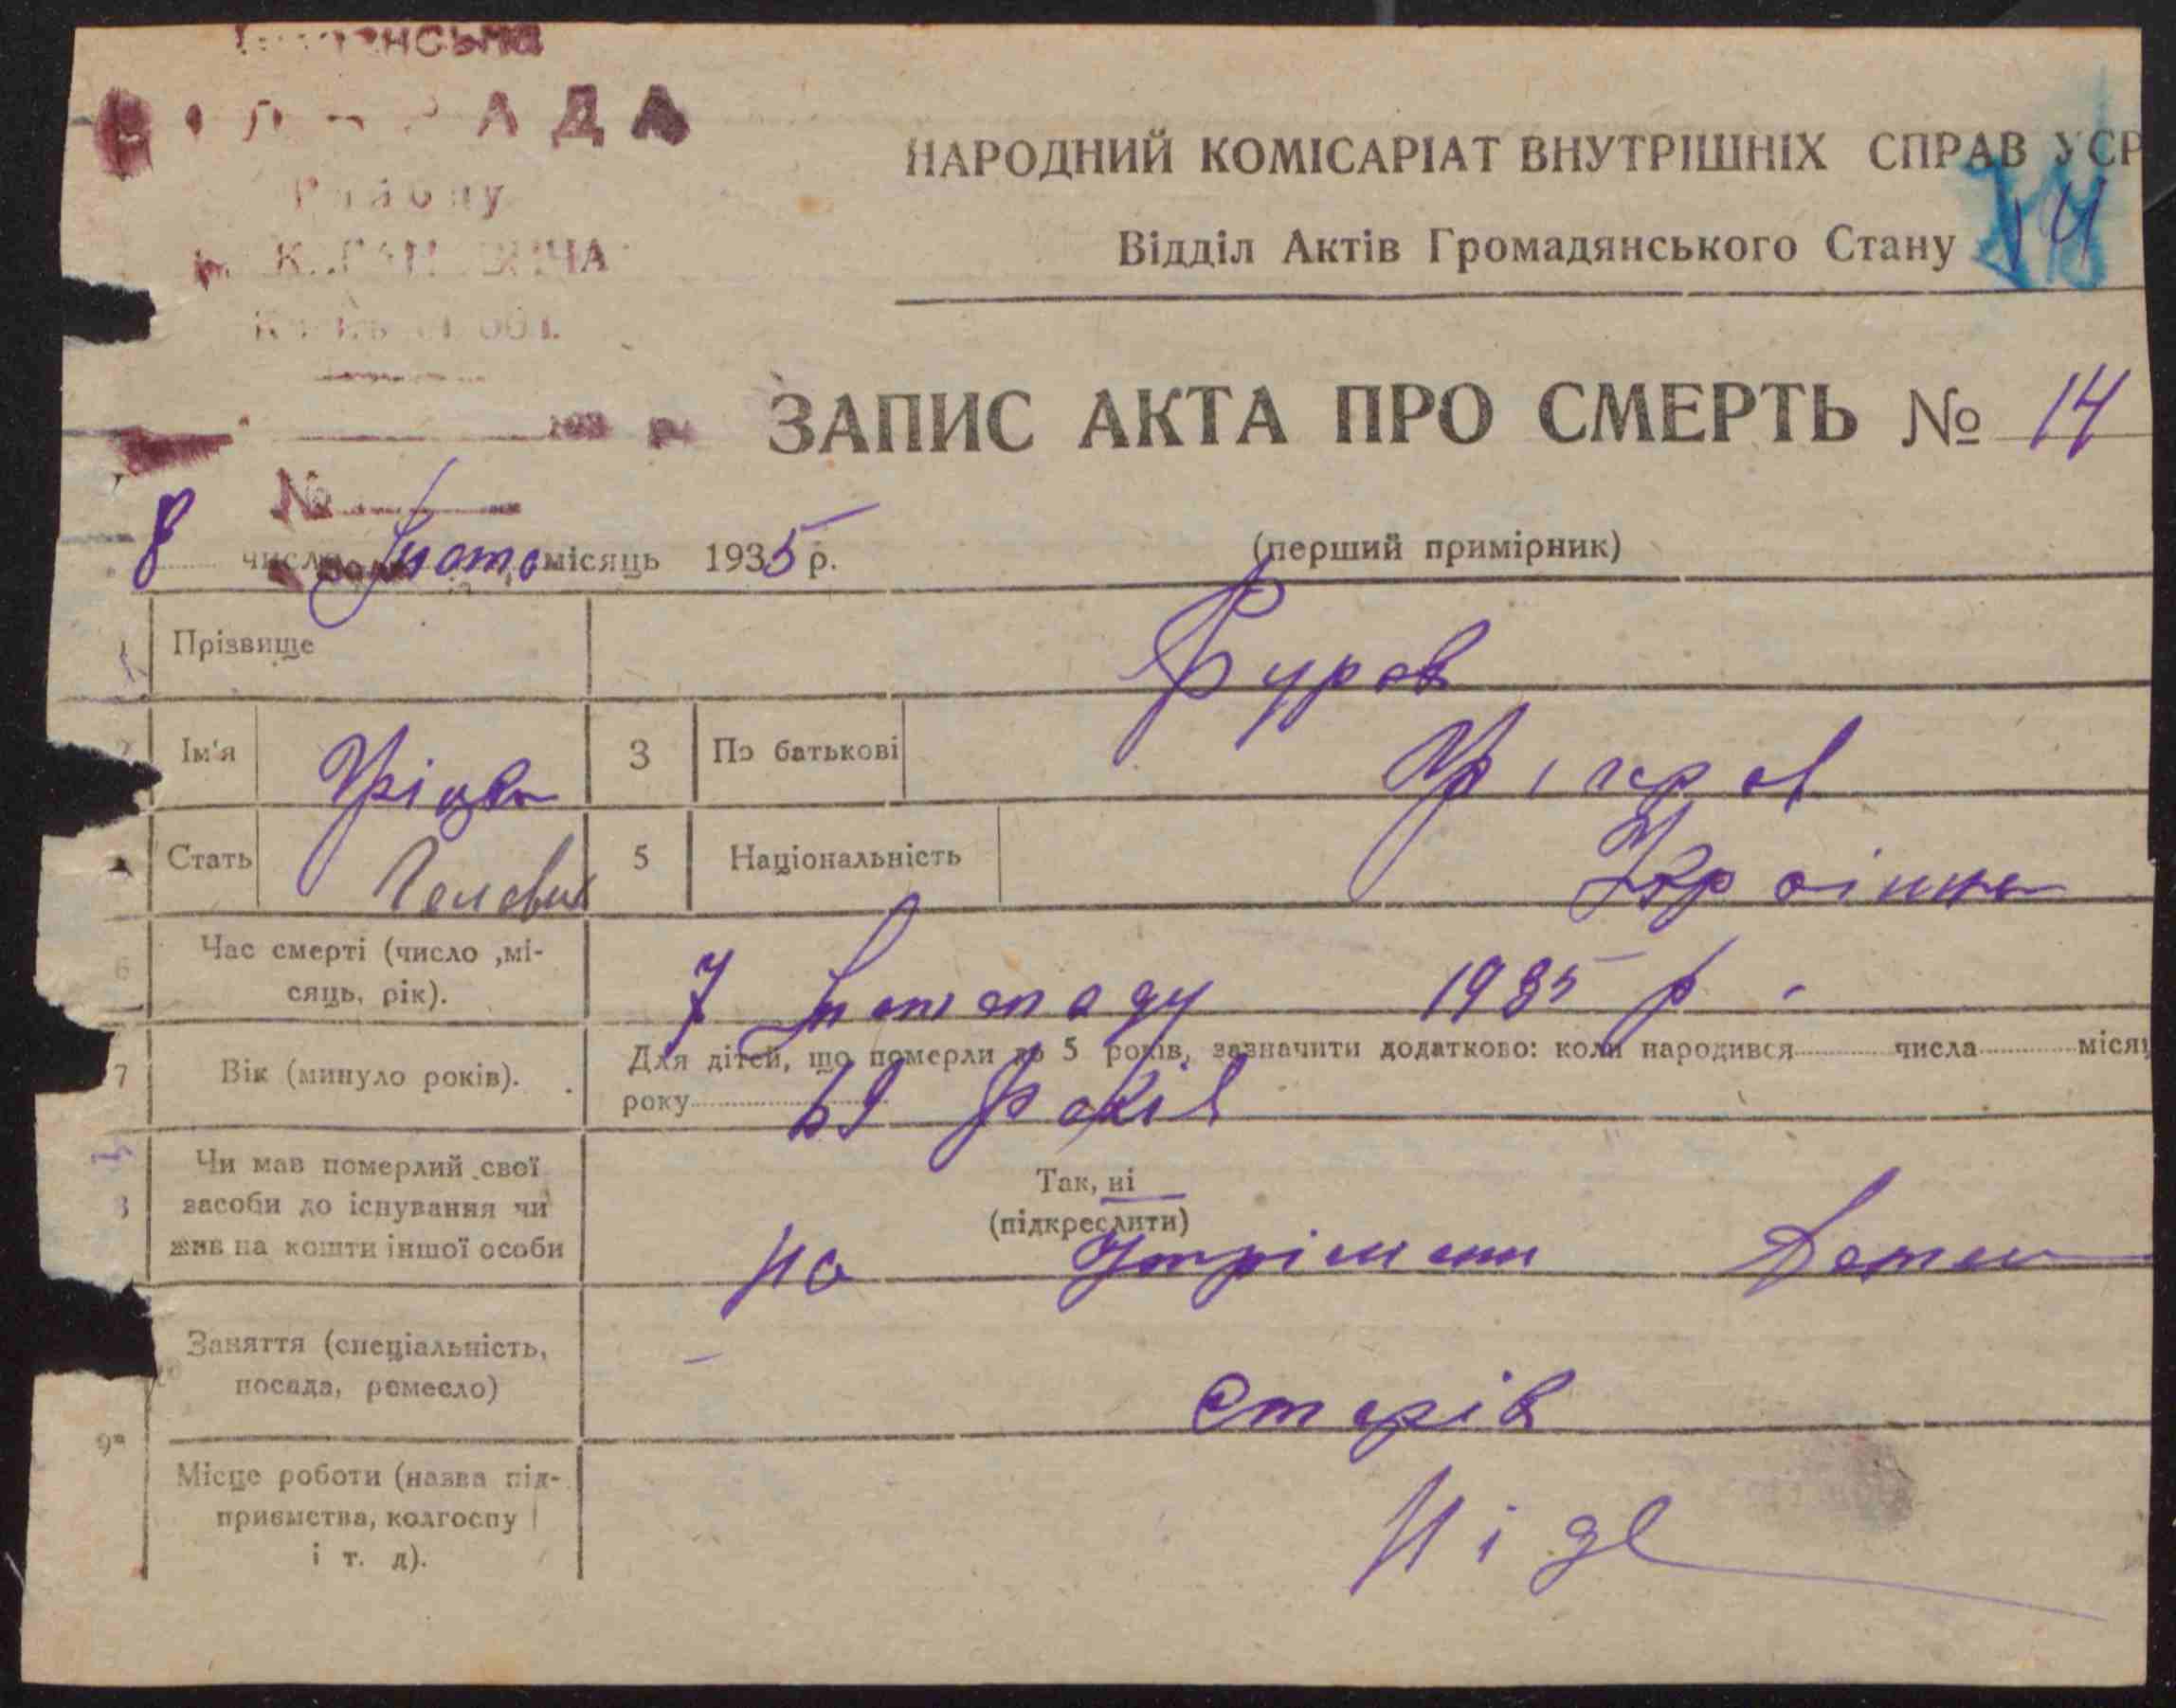 НАРОДНИЙ КОМІСАРІАТ ВНУТРІШНІХ СПРАВ УСР
Відділ Актів Громадянського Стану
14
ЗАПИС АКТА ПРО СМЕРТЬ № 14
№
8 число місяць 1935 р.
(перший примірник)
Прізвище Фуров
Ім'я Гріцко 3 По батькові
Стать Чоловік 5 Національність Украінец
6 Час смерті (число ,мі-
сяць, рік).
7 Листопаду 1935 р.
7 Вік (минуло років).
Для дітей, що померли до 5 років, зазначити додатково: коли народився числа місяц
року
69 Років
Чи мав померлий свої
засоби до існування чи
жив на кошти іншої особи
Так, ні
(підкреслити)
на Утріманні Детей
Заняття (спеціальність,
посада, ремесло)
9а
Місце роботи (назва під-
приємства, колгоспу
і т. д).
Нігде